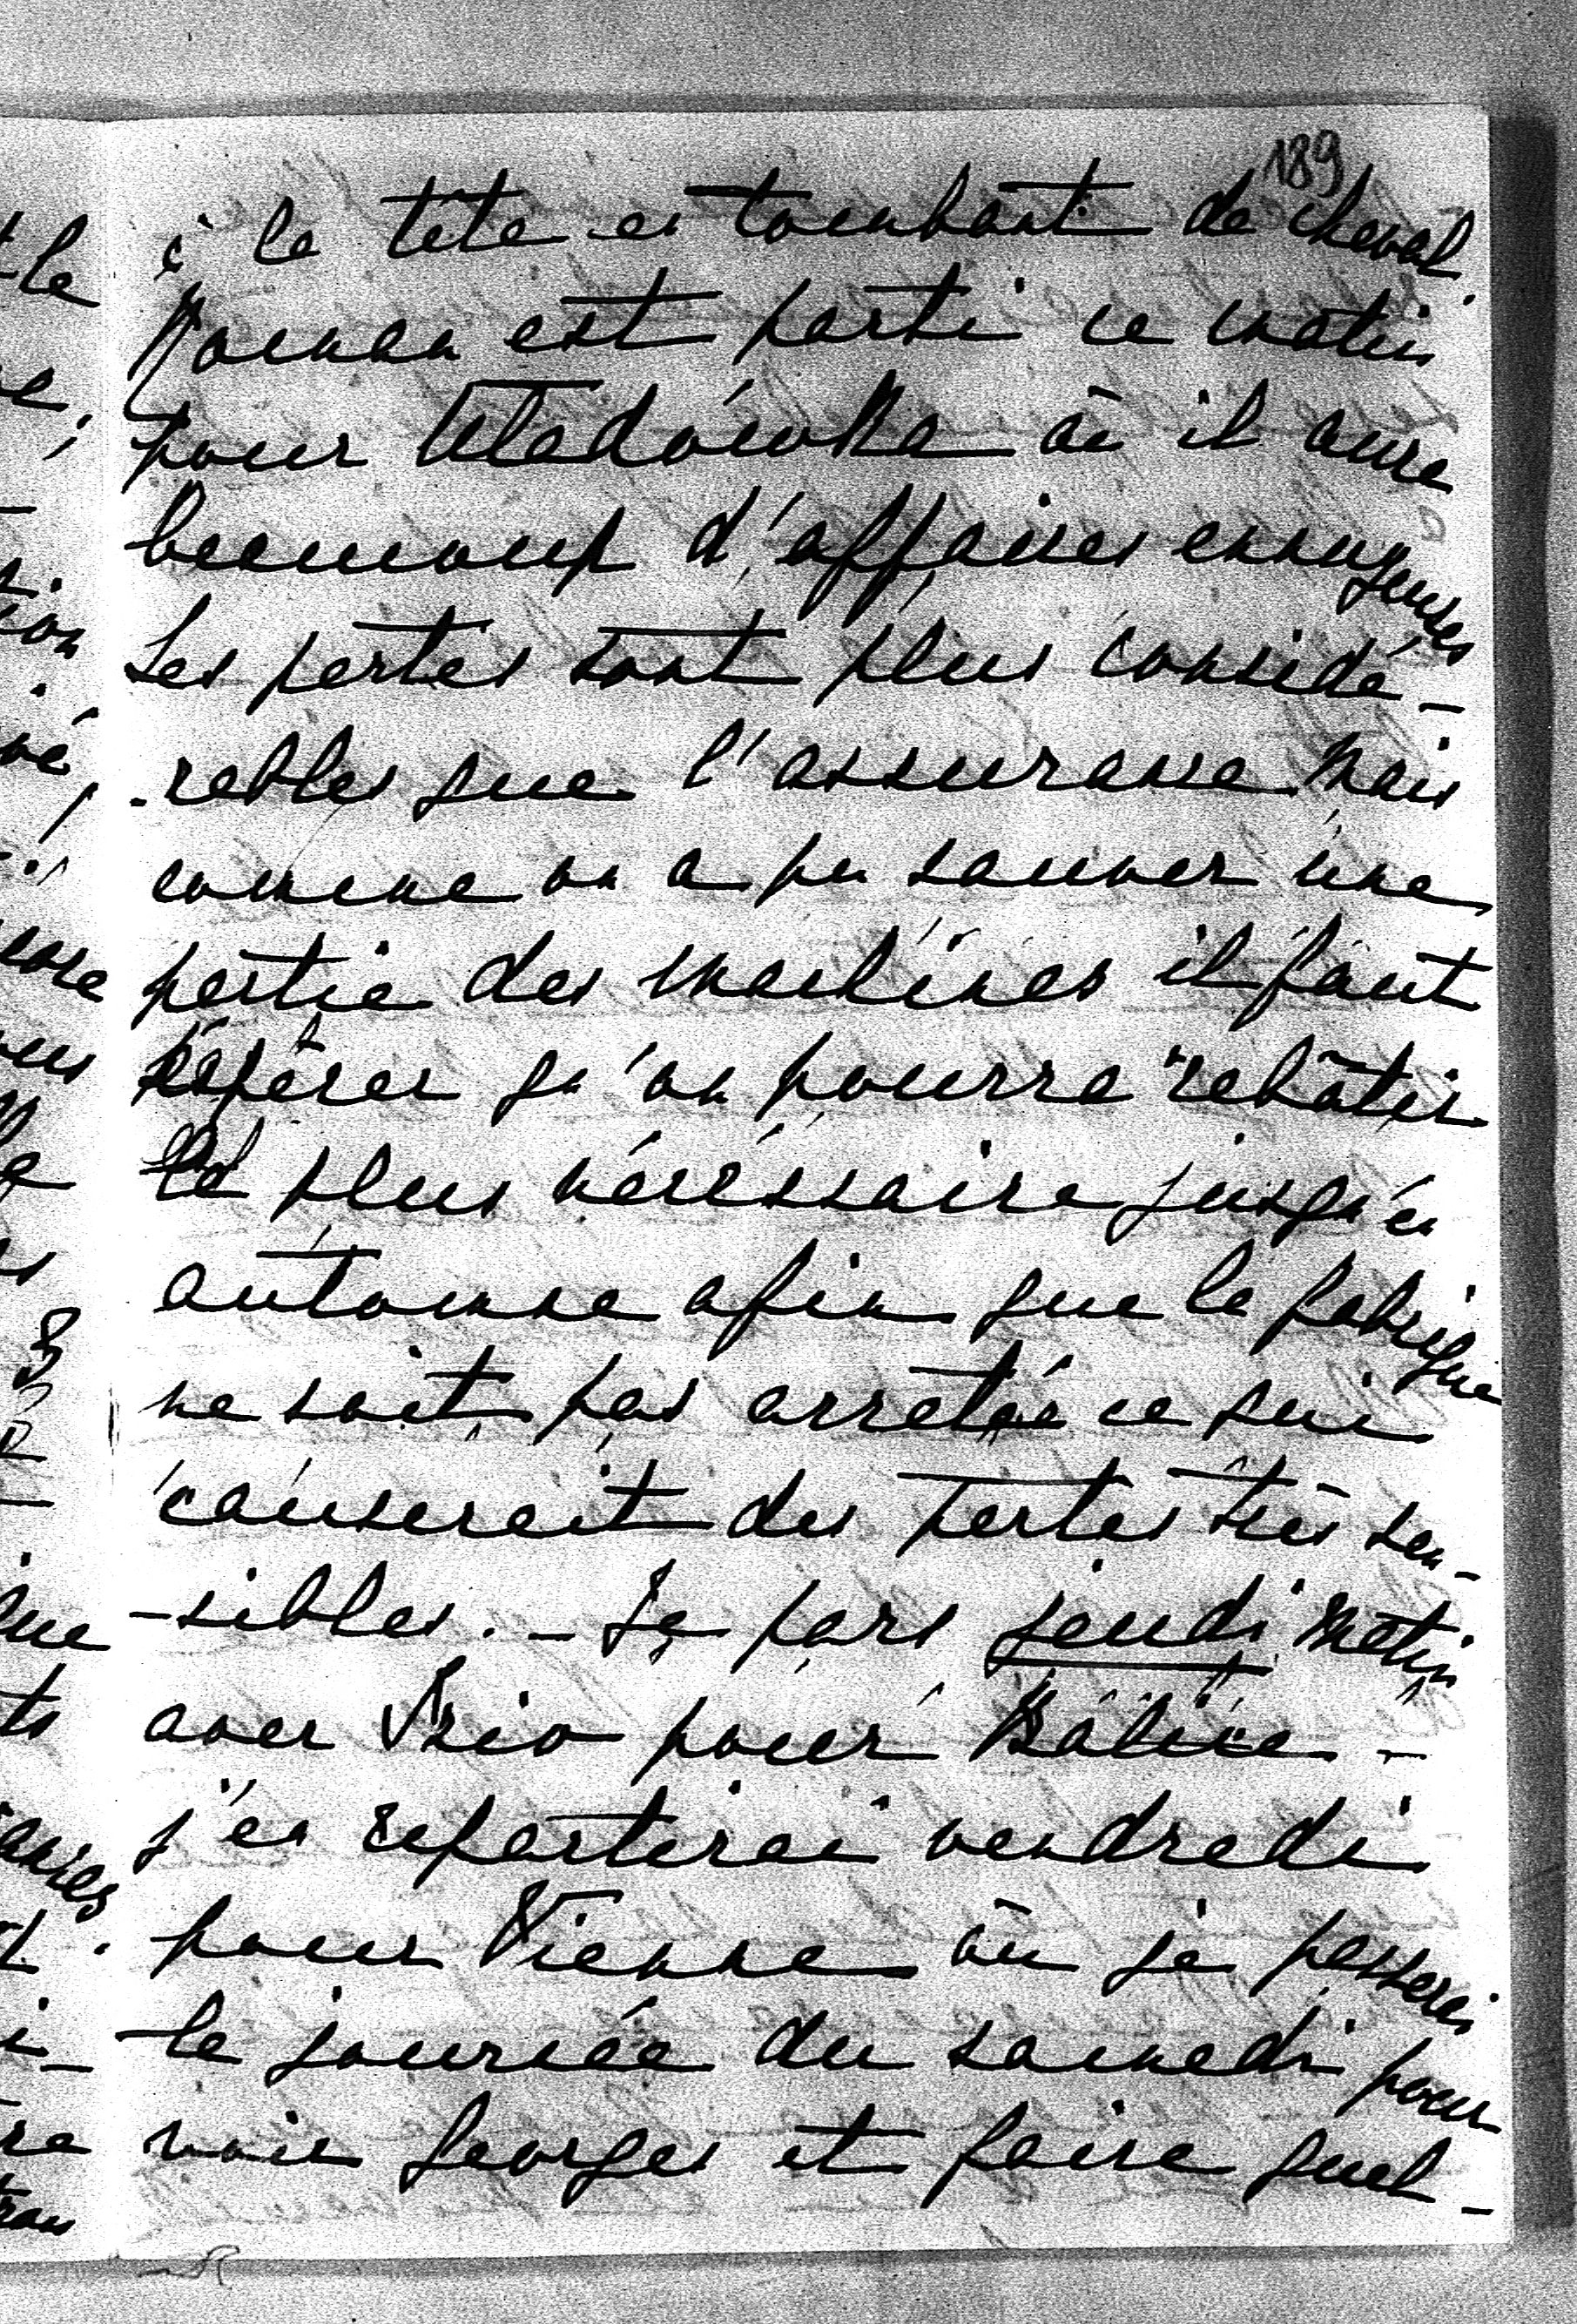 189
à la tête en tombant de cheval.
Roman est parti ce matin
pour Uładówka où il aura
beaucoup d'affaires ennuyeuses
Les pertes sont plus considé-
-rables que l'assurance mais
comme on a pu sauver une
partie des machines il faut
espérer qu'on pourra rebâtir
le plus nécéssaire jusqu'en
automne afin que la fabrique
ne soit pas arretée ce qui
causerait des pertes très sen-
-sibles. - Je pars jeudi matin
avec pour Balice -
j'en repartirai vendredi
pour Vienne où je passerai
la journée du samedi pour
voir Georges et faire quel-